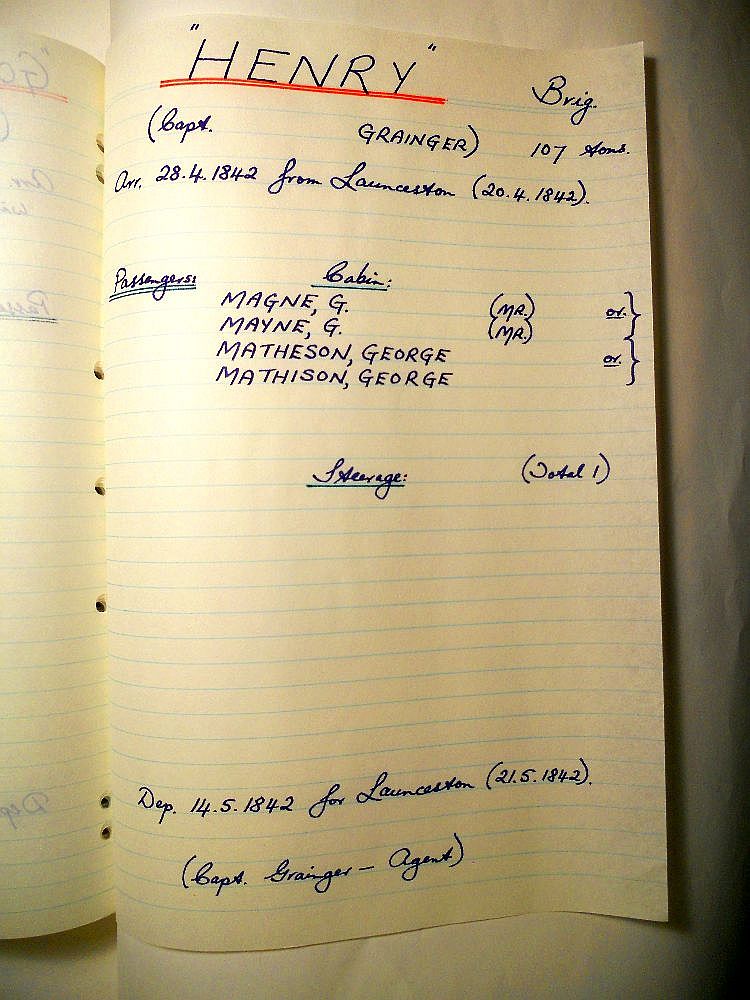 "HENRY" Brig.
(Capt. GRAINGER) 107 tons.
Arr. 28.4.1842 from Launceston (20.4.1842).
Passengers: Cabin:
MAGNE, G. (MR.) or.
MAYNE, G. (MR.)
MATHESON, GEORGE or.
MATHISON, GEORGE
Steerage: (Total 1)
Dep. 14.5.1842 for Launceston (21.5.1842).
(Capt. Grainger – Agent)